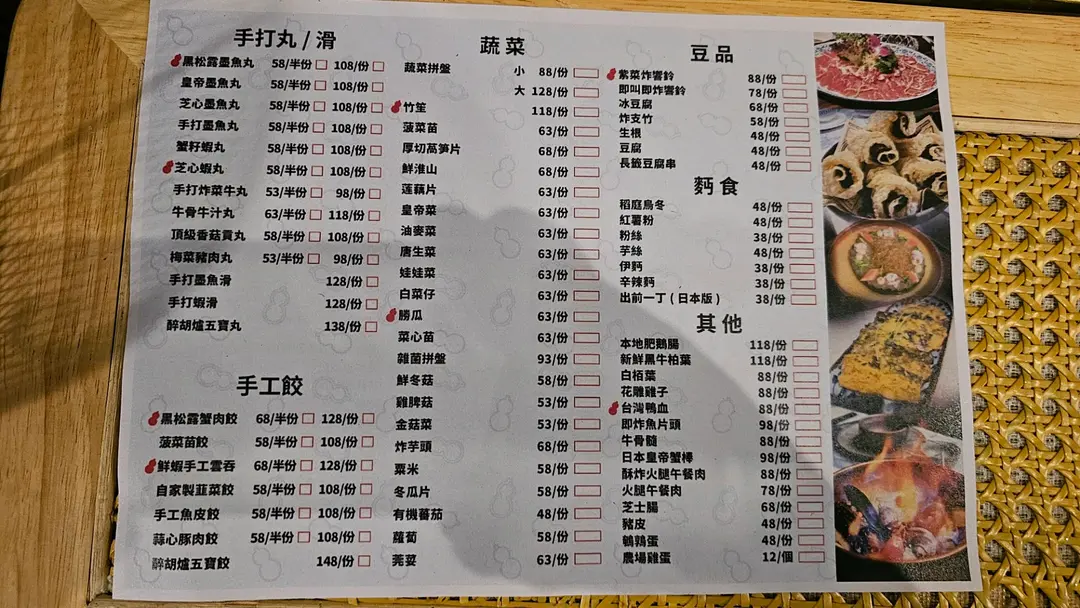 手打丸 / 滑
黑松露墨魚丸 58/半份 108/份
皇帝墨魚丸 58/半份 108/份
芝心墨魚丸 58/半份 108/份
手打墨魚丸 58/半份 108/份
蟹籽蝦丸 58/半份 108/份
芝心蝦丸 58/半份 108/份
手打炸菜牛丸 53/半份 98/份
牛骨牛汁丸 63/半份 118/份
頂級香菇貢丸 58/半份 108/份
梅菜豬肉丸 53/半份 98/份
手打墨魚滑 128/份
手打蝦滑 128/份
醉胡爐五寶丸 138/份
手工餃
黑松露蟹肉餃 68/半份 128/份
菠菜苗餃 58/半份 108/份
鮮蝦手工雲吞 68/半份 128/份
自家製韮菜餃 58/半份 108/份
手工魚皮餃 58/半份 108/份
蒜心豚肉餃 58/半份 108/份
醉胡爐五寶餃 148/份
蔬菜
蔬菜拼盤 小 88/份
大 128/份
竹笙 118/份
菠菜苗 63/份
厚切萵笋片 68/份
鮮淮山 68/份
蓮藕片 63/份
皇帝菜 63/份
油麥菜 63/份
唐生菜 63/份
娃娃菜 63/份
白菜仔 63/份
勝瓜 63/份
菜心苗 63/份
雜菌拼盤 93/份
鮮冬菇 58/份
雞脾菇 53/份
金菇菜 53/份
炸芋頭 68/份
粟米 58/份
冬瓜片 58/份
有機蕃茄 48/份
蘿蔔 58/份
芫荽 63/份
豆品
紫菜炸響鈴 88/份
即叫即炸響鈴 78/份
冰豆腐 68/份
炸支竹 58/份
生根 48/份
豆腐 48/份
長籤豆腐串 48/份
麪食
稻庭烏冬 48/份
紅薯粉 48/份
粉絲 38/份
芋絲 48/份
伊麪 38/份
辛辣麪 38/份
出前一丁 ( 日本版 ) 38/份
其他
本地肥鵝腸 118/份
新鮮黑牛柏葉 118/份
白栢葉 88/份
花雕雞子 88/份
台灣鴨血 88/份
即炸魚片頭 98/份
牛骨髓 88/份
日本皇帝蟹棒 98/份
酥炸火腿午餐肉 88/份
火腿午餐肉 78/份
芝士腸 68/份
豬皮 48/份
鵪鶉蛋 48/份
農場雞蛋 12/個